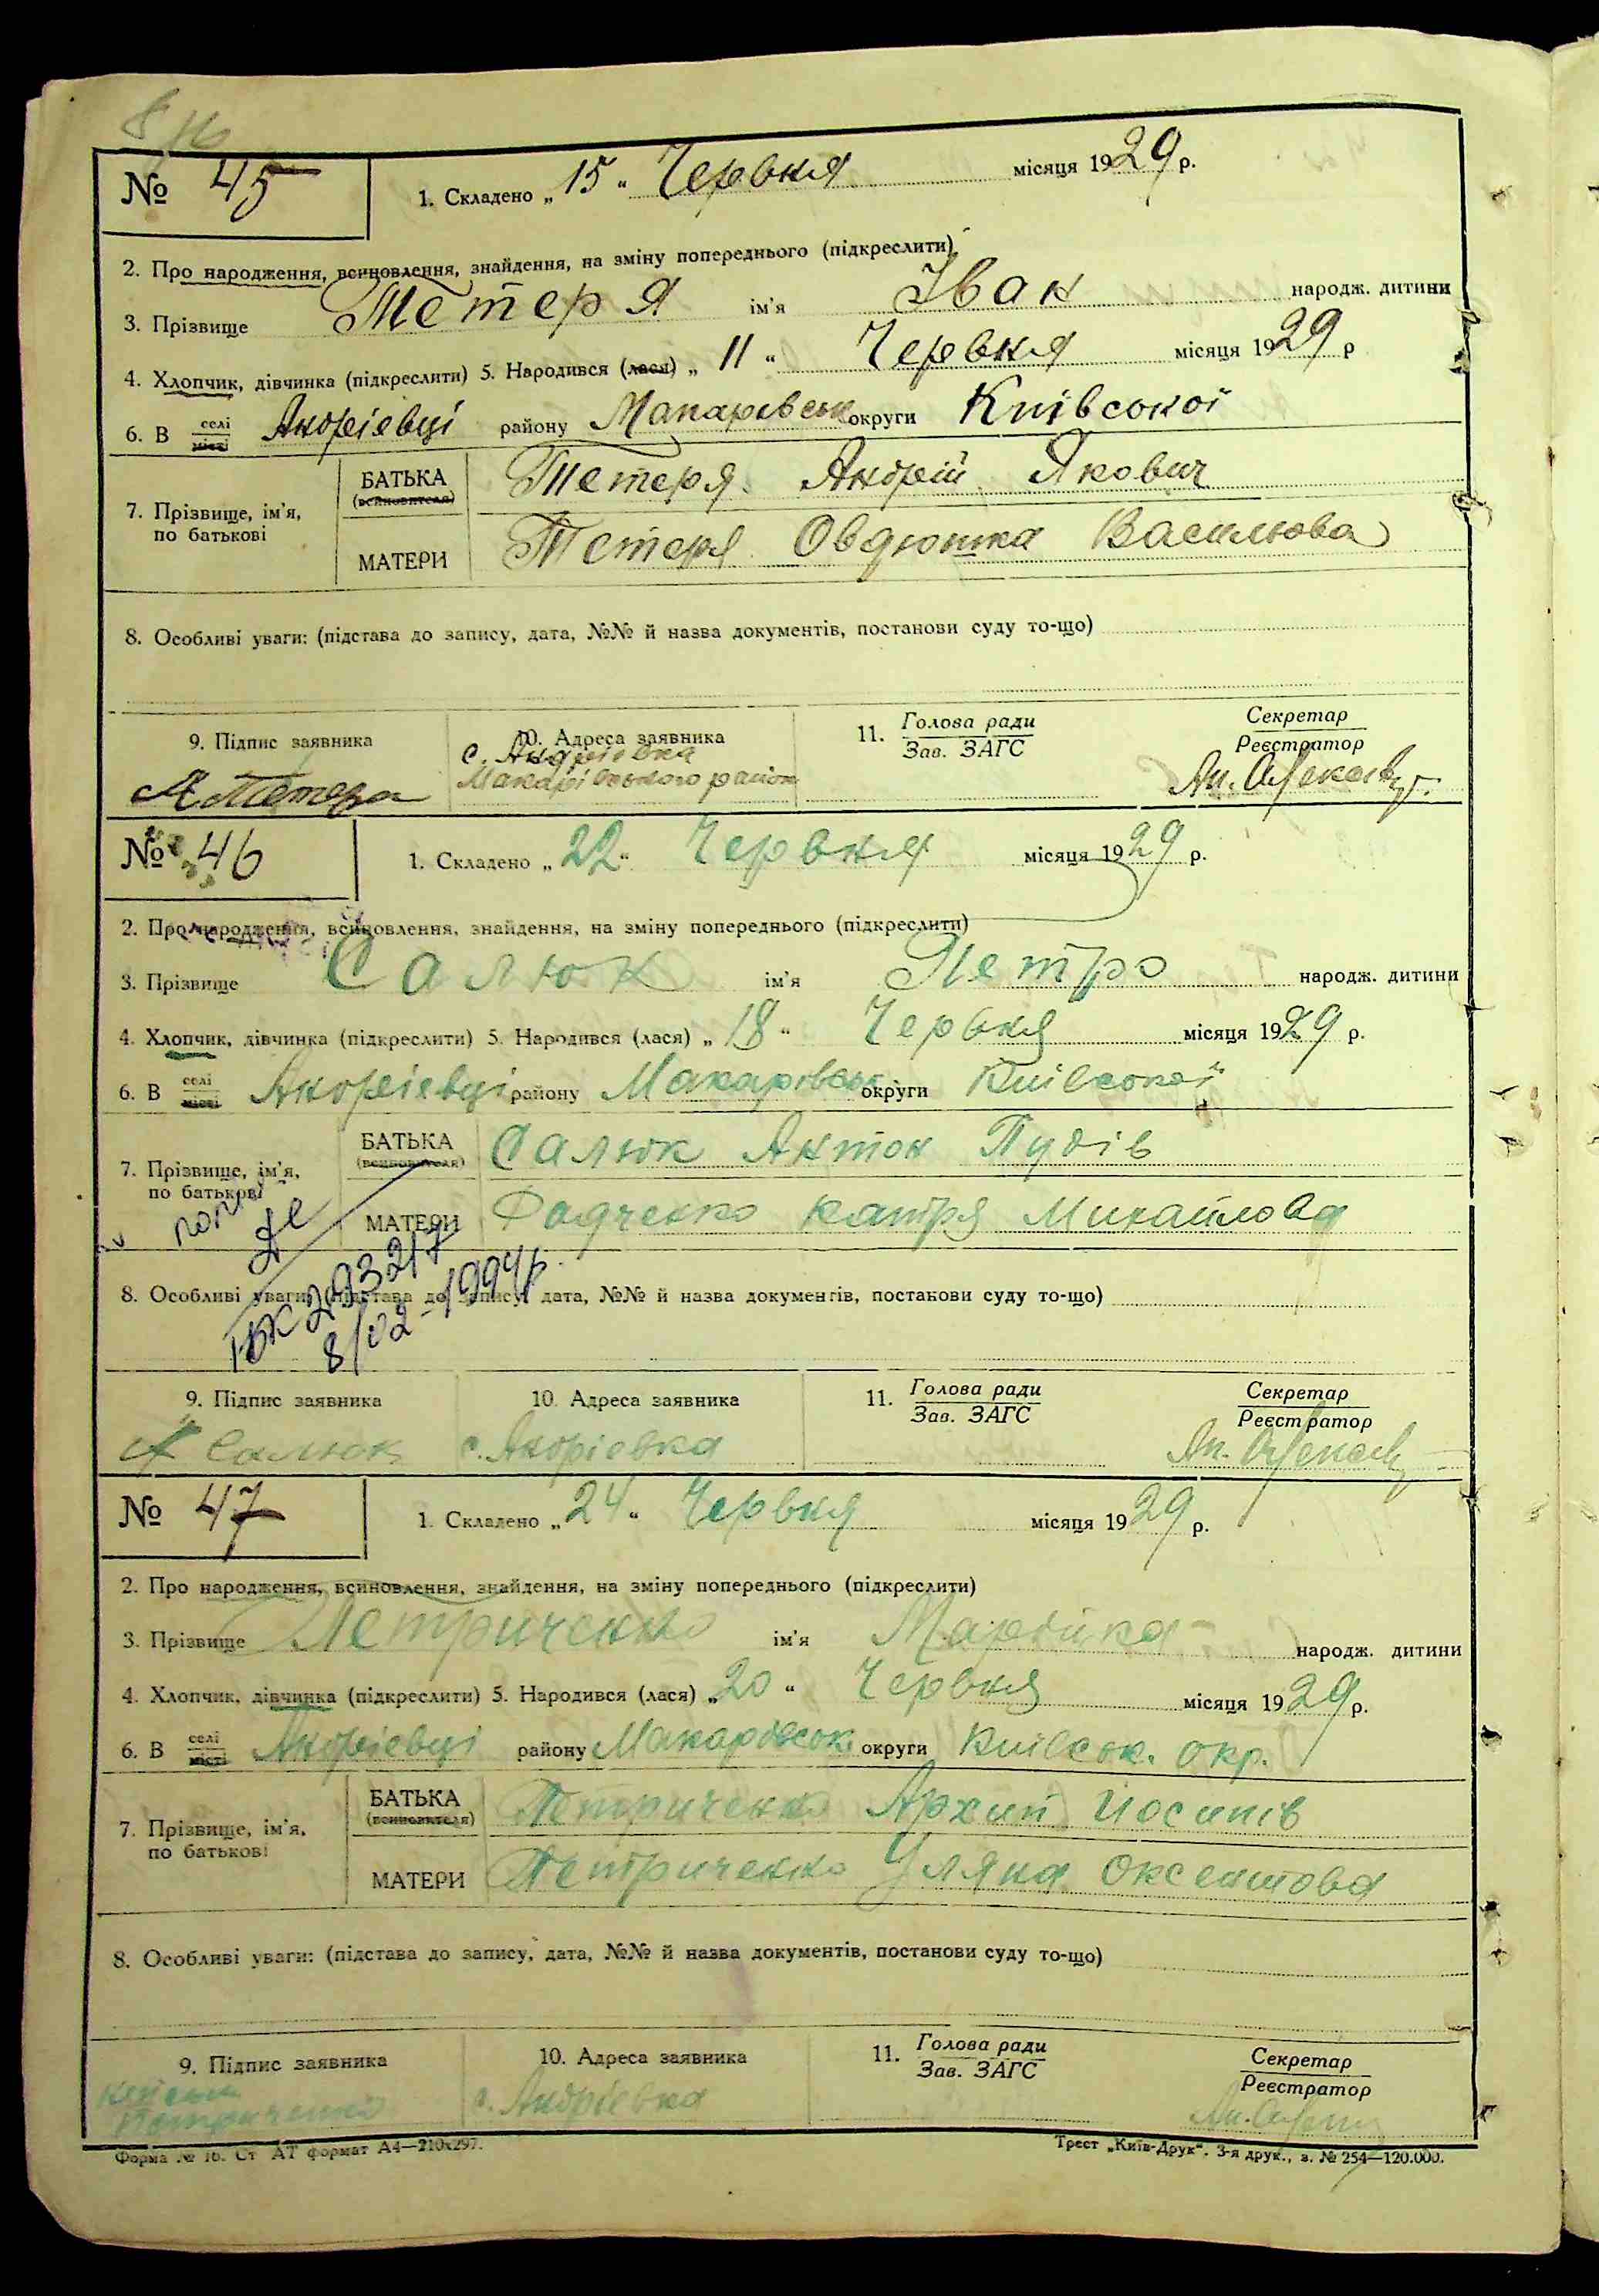 № 45
1. Складено „ 15 “ Червня місяця 1929 р.
2. Про народження, всиновлення, знайдення, на зміну попереднього (підкреслити)
3. Прізвище Тетеря ім'я Іван народж. дитини
4. Хлопчик, дівчинка (підкреслити) 5. Народився (лася) „ 11 “ Червня місяця 1929 р
6. В селі місті Андріевці району Макарівськ округи Київської
БАТЬКА (всиновителя) Тетеря Андрій Якович
7. Прізвище, ім'я, по батькові
МАТЕРИ Тетеря Овдюшка Васильова
8. Особливі уваги: (підстава до запису, дата, №№ й назва документів, постанови суду то-що)
9. Підпис заявника 10. Адреса заявника 11. Голова ради Зав. ЗАГС Секретар Реєстратор
А Тетеря с. Андріевка Макарівського район
№ 46
1. Складено „ 22 “ Червня місяця 1929 р.
2. Про народження, всиновлення, знайдення, на зміну попереднього (підкреслити)
3. Прізвище Салюк ім'я Петро народж. дитини
4. Хлопчик, дівчинка (підкреслити) 5. Народився (лася) „ 18 “ Червня місяця 1929 р.
6. В селі місті Андріевці району Макарівськ округи Київської
БАТЬКА (всиновителя) Салюк Антон Гудів
7. Прізвище, ім'я, по батькові
МАТЕРИ Катря Михайлова
8. Особливі уваги: (підстава до запису, дата, №№ й назва документів, постанови суду то-що)
8/02-1994р.
9. Підпис заявника 10. Адреса заявника 11. Голова ради Зав. ЗАГС Секретар Реєстратор
А Салюк с. Андріевка
№ 47
1. Складено „ 24 “ Червня місяця 1929 р.
2. Про народження, всиновлення, знайдення, на зміну попереднього (підкреслити)
3. Прізвище Петриченко ім'я народж. дитини
4. Хлопчик, дівчинка (підкреслити) 5. Народився (лася) „ 20 “ Червня місяця 1929 р.
6. В селі місті Андріевці району Макарівськ. округи Київськ. окр.
БАТЬКА (всиновителя) Петриченко Архип Йосипів
7. Прізвище, ім'я, по батькові
МАТЕРИ Петриченко Уляна Оксентова
8. Особливі уваги: (підстава до запису, дата, №№ й назва документів, постанови суду то-що)
9. Підпис заявника 10. Адреса заявника 11. Голова ради Зав. ЗАГС Секретар Реєстратор
Петриченко с. Андріевка
Форма № 16. Ст АТ формат А4—210х297. Трест „Київ-Друк“. 3-я друк., з. № 254—120.000.